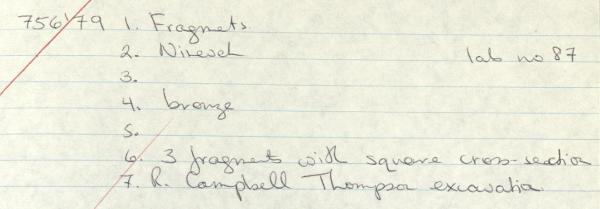 756/79 1. Fragments
2. Nineveh lab no 87
3.
4. bronze
5.
6. 3 fragments with square cross-section
7. R. Campbell Thompson excavation.